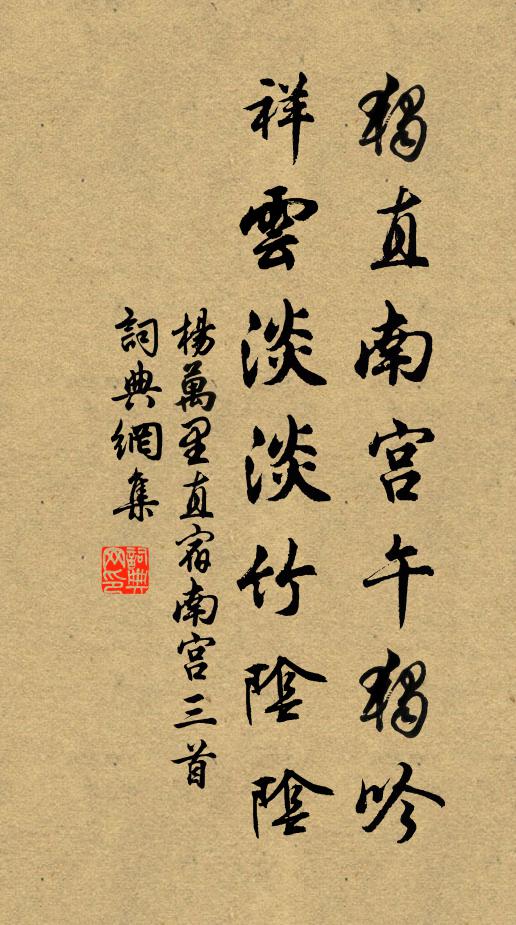 獨直南宮午獨吟
祥雲淡淡竹陰陰
楊萬里直宿南宮三首
詞典網集
詞典網印